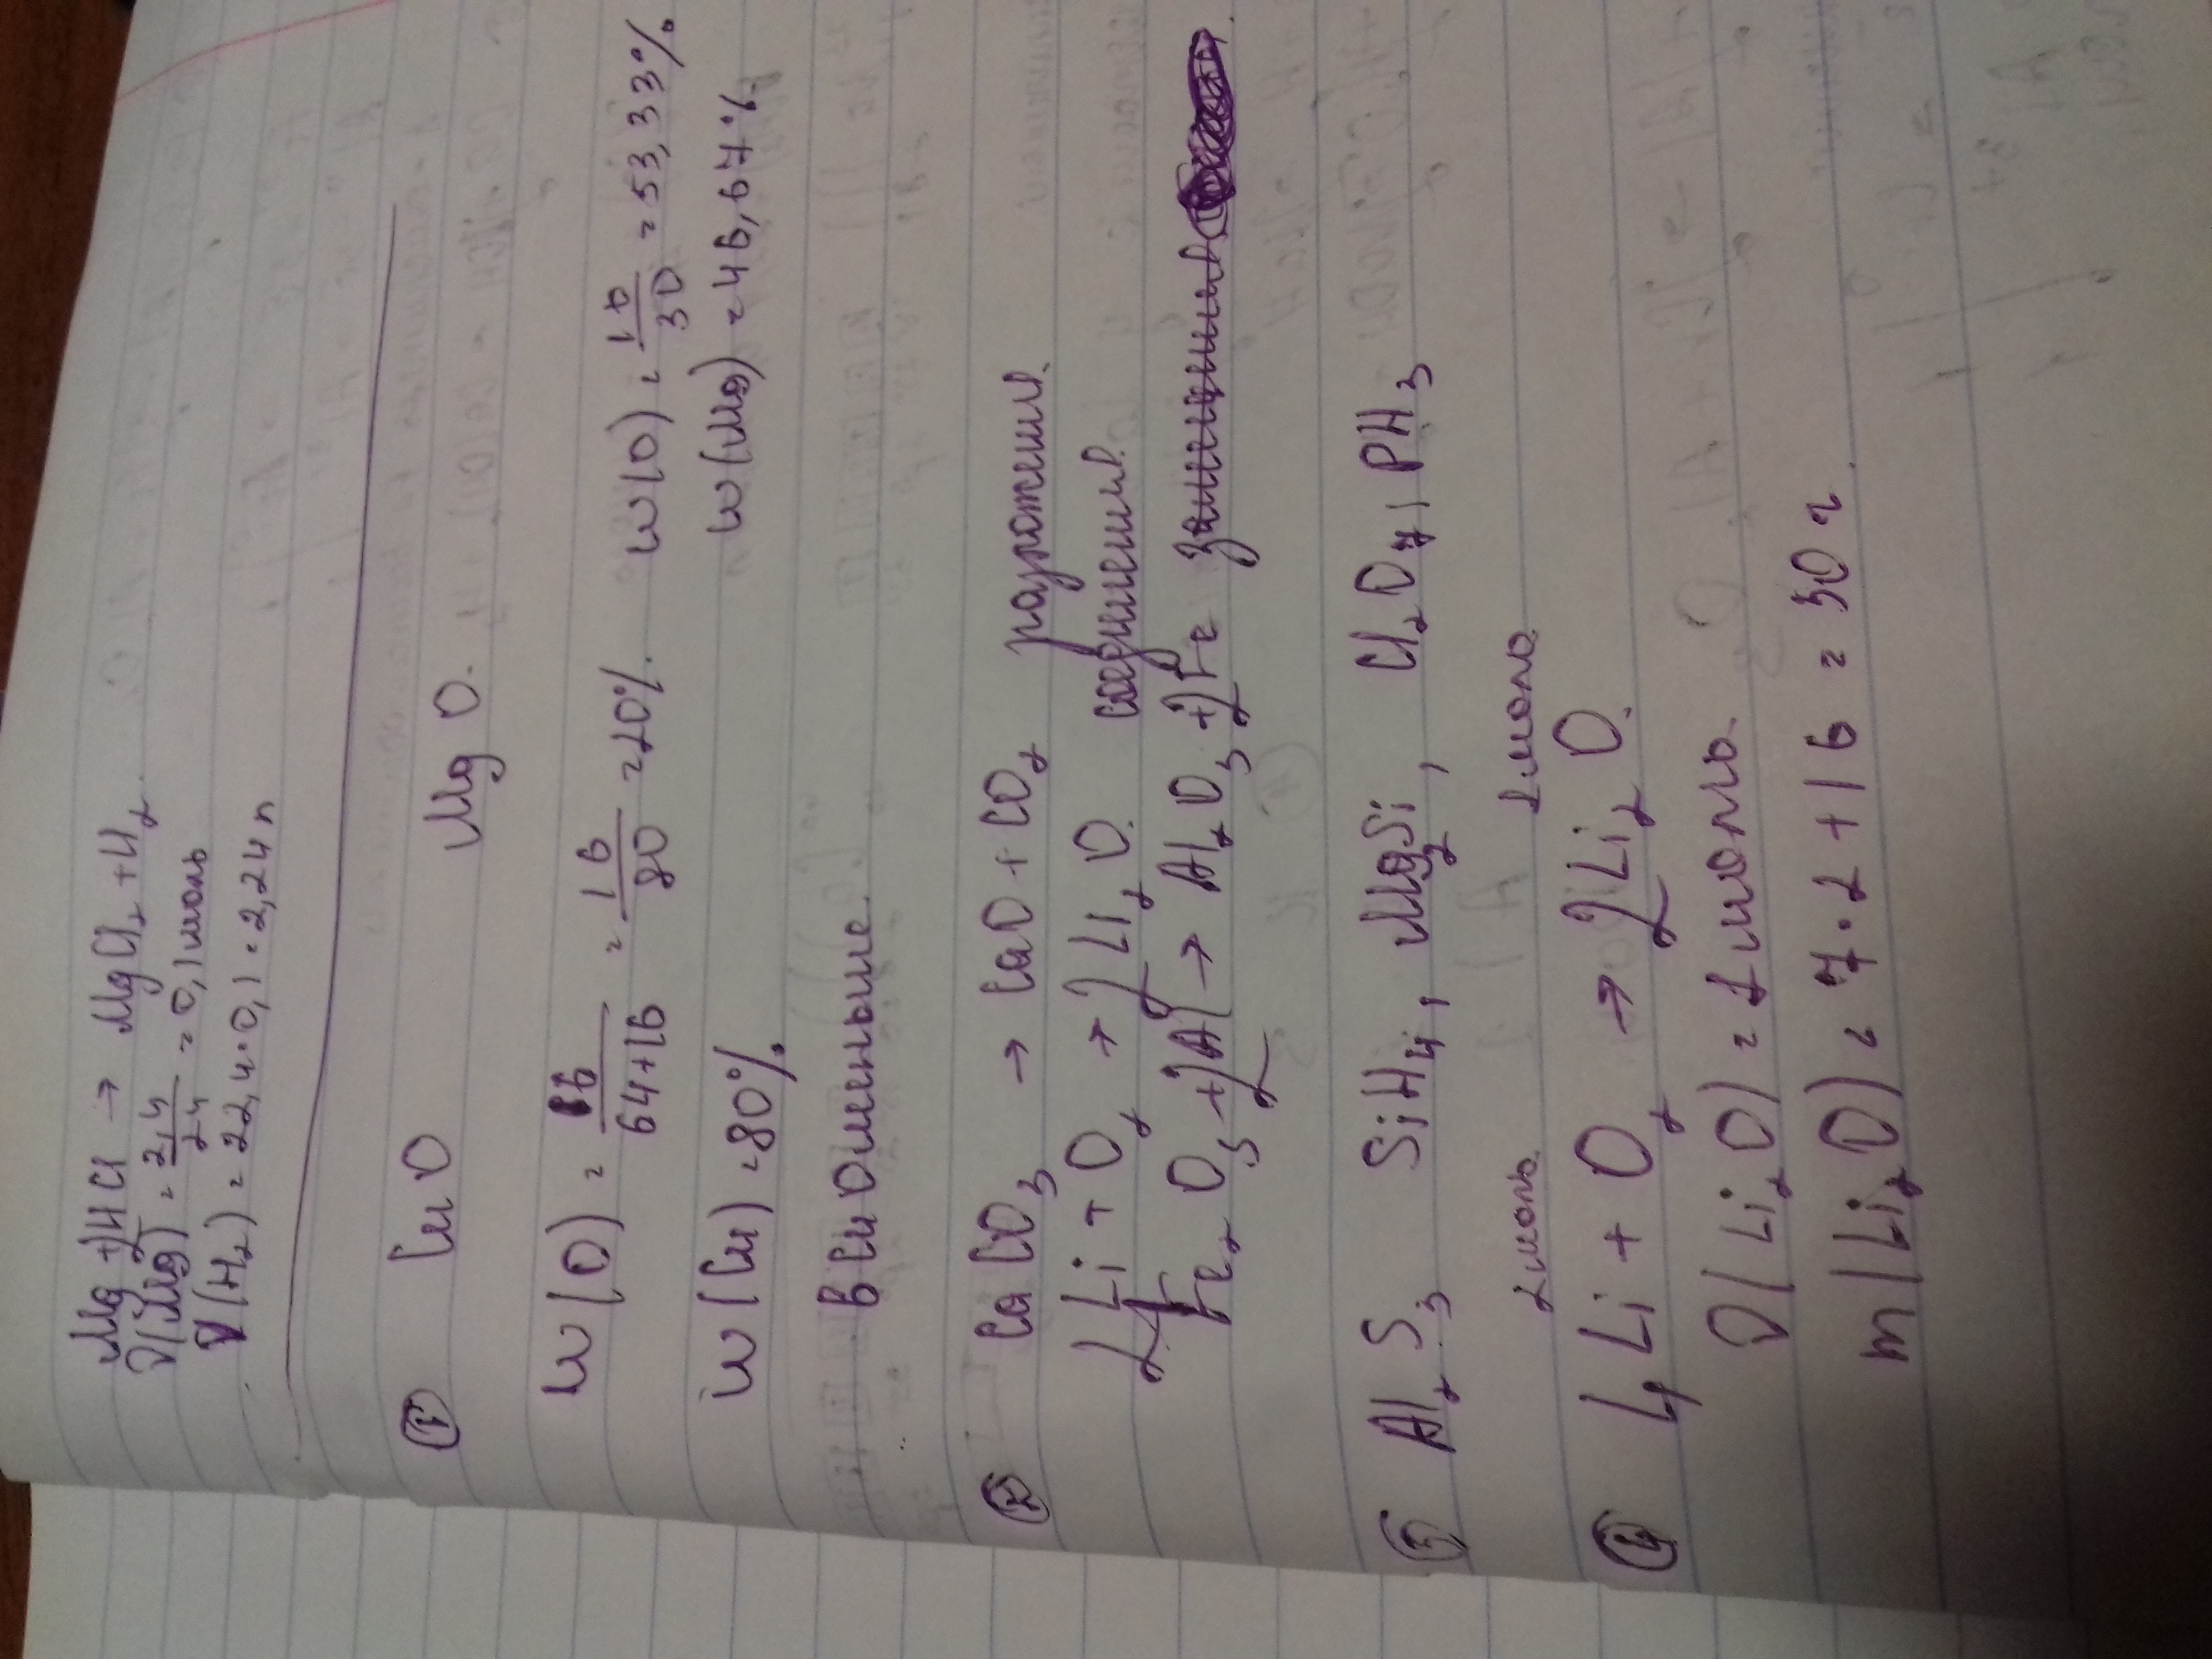 Mg + 2HCl → MgCl₂ + H₂
ν(Mg) = 2,4/24 = 0,1 моль
V(H₂) = 22,4 · 0,1 = 2,24 л
① CuO MgO.
w(O) = 16/64+16 = 16/80 = 20%. w(O) = 16/30 = 53,33%
w(Cu) = 80% w(Mg) = 46,67%
в CuO меньше.
② CaCO₃ → CaO + CO₂ разложения.
4Li + O₂ → 2Li₂O. соединения.
Fe₂O₃ + 2Al → Al₂O₃ + 2Fe замещения
③ Al₂S₃ SiH₄, Mg₂Si, Cl₂O₇, PH₃
2 моль. 1 моль
④ 4Li + O₂ → 2Li₂O.
ν(Li₂O) = 1 моль.
m(Li₂O) = 7·2+16 = 30 г